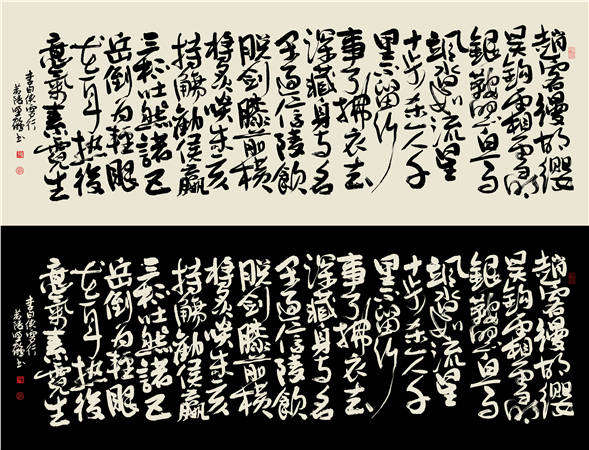 趙客縵胡纓
吳鉤霜雪明
銀鞍照白馬
颯沓如流星
十步杀一人千
里不留行
事了拂衣去
深藏身与名
闲過信陵飲
脱劍膝前横
将炙啖朱亥
持觴勸侯嬴
三杯吐然諾五
岳倒为輕眼
花耳热後
意氣素霓生
李白俠客行
趙客縵胡纓
吳鉤霜雪明
銀鞍照白馬
颯沓如流星
十步杀一人千
里不留行
事了拂衣去
深藏身与名
闲過信陵飲
脱劍膝前横
将炙啖朱亥
持觴勸侯嬴
三杯吐然諾五
岳倒为輕眼
花耳热後
意氣素霓生
李白俠客行